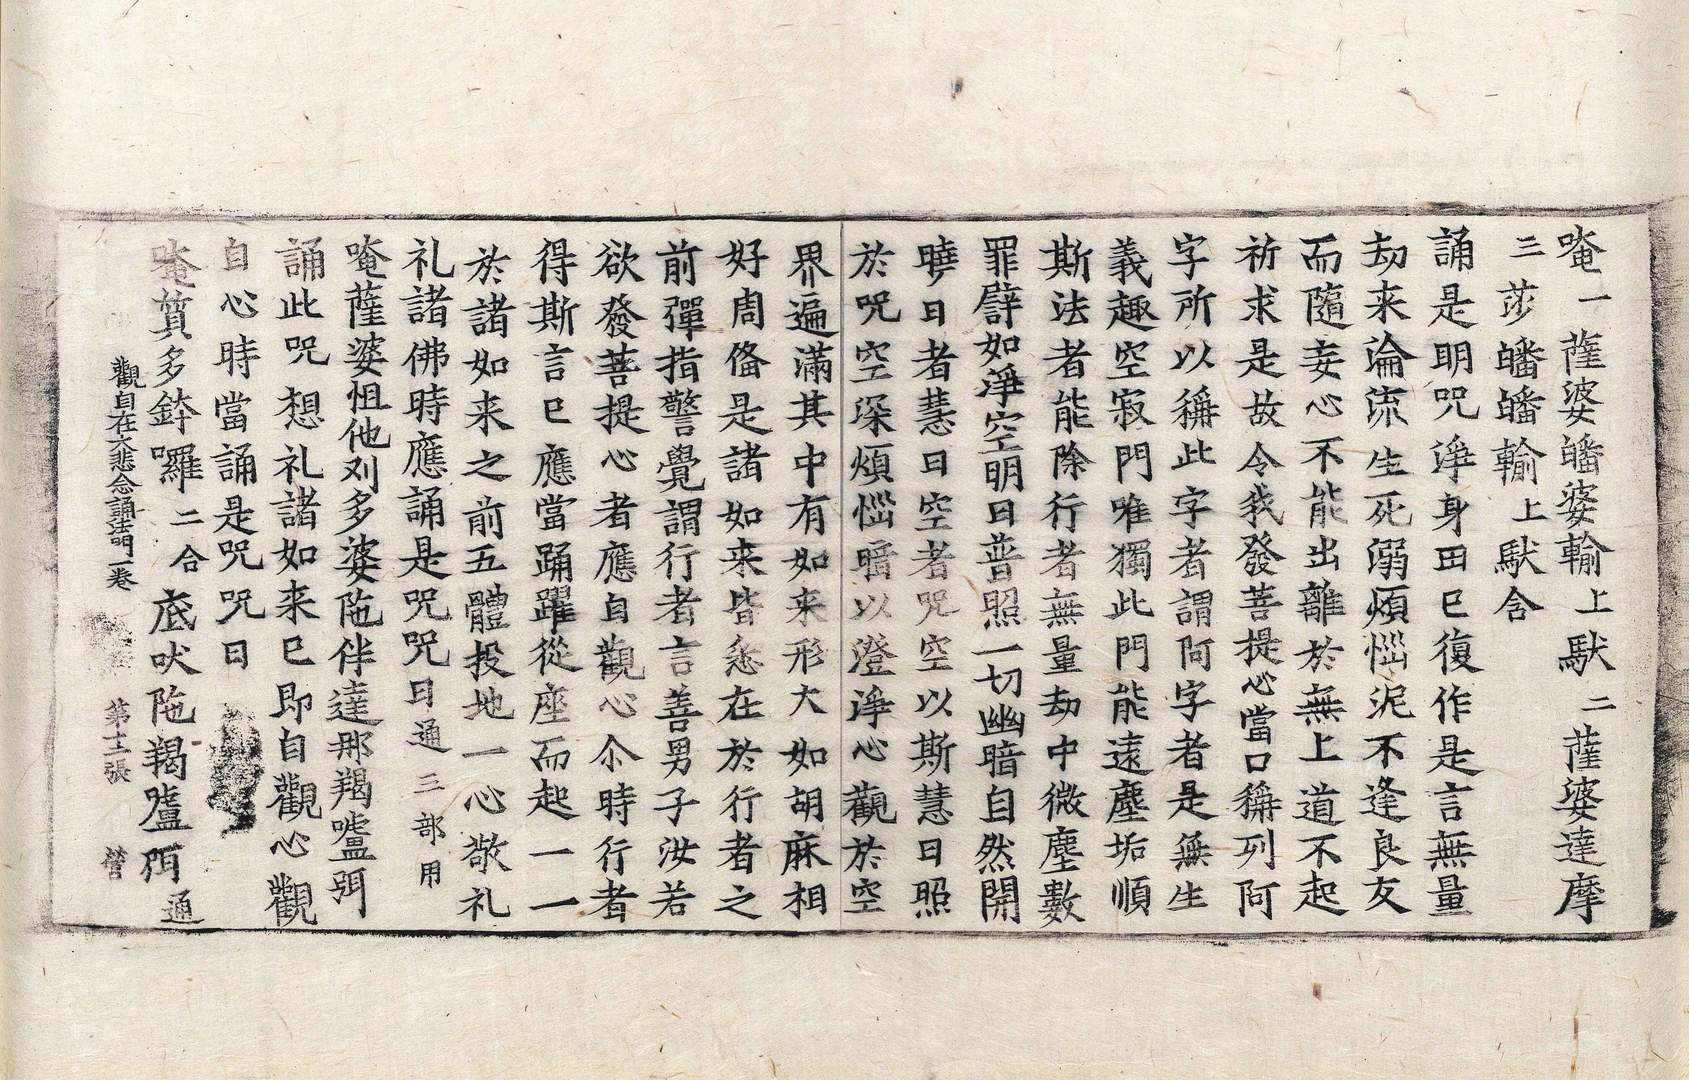 唵一薩婆皤婆輸上馱二薩婆達摩
三莎皤皤輸上馱含
誦是明咒淨身田已復作是言無量
劫来淪流生死溺煩惱泥不逢良友
而隨妄心不能出離於無上道不起
祈求是故令我發菩提心當口稱列阿
字所以稱此字者謂阿字者是無生
義趣空寂門唯獨此門能遠塵垢順
斯法者能除行者無量劫中微塵數
罪譬如淨空明日普照一切幽暗自然開
曉日者慧日空者咒空以斯慧日照
於咒空深煩惱暗以澄淨心觀於空
界遍滿其中有如来形大如胡麻相
好周俻是諸如来皆悉在於行者之
前彈指警覺謂行者言善男子汝若
欲發菩提心者應自觀心尒時行者
得斯言已應當踊躍從座而起一一
於諸如来之前五體投地一心敬礼
礼諸佛時應誦是咒咒曰通三部用
唵薩婆怛他刈多婆陁伴達那羯嚧弭
誦此咒想礼諸如来已即自觀心觀
自心時當誦是咒咒曰
唵質多鉢囉二合底吠陁羯嚧弭通
觀自在大悲念誦法門一卷　第十二張